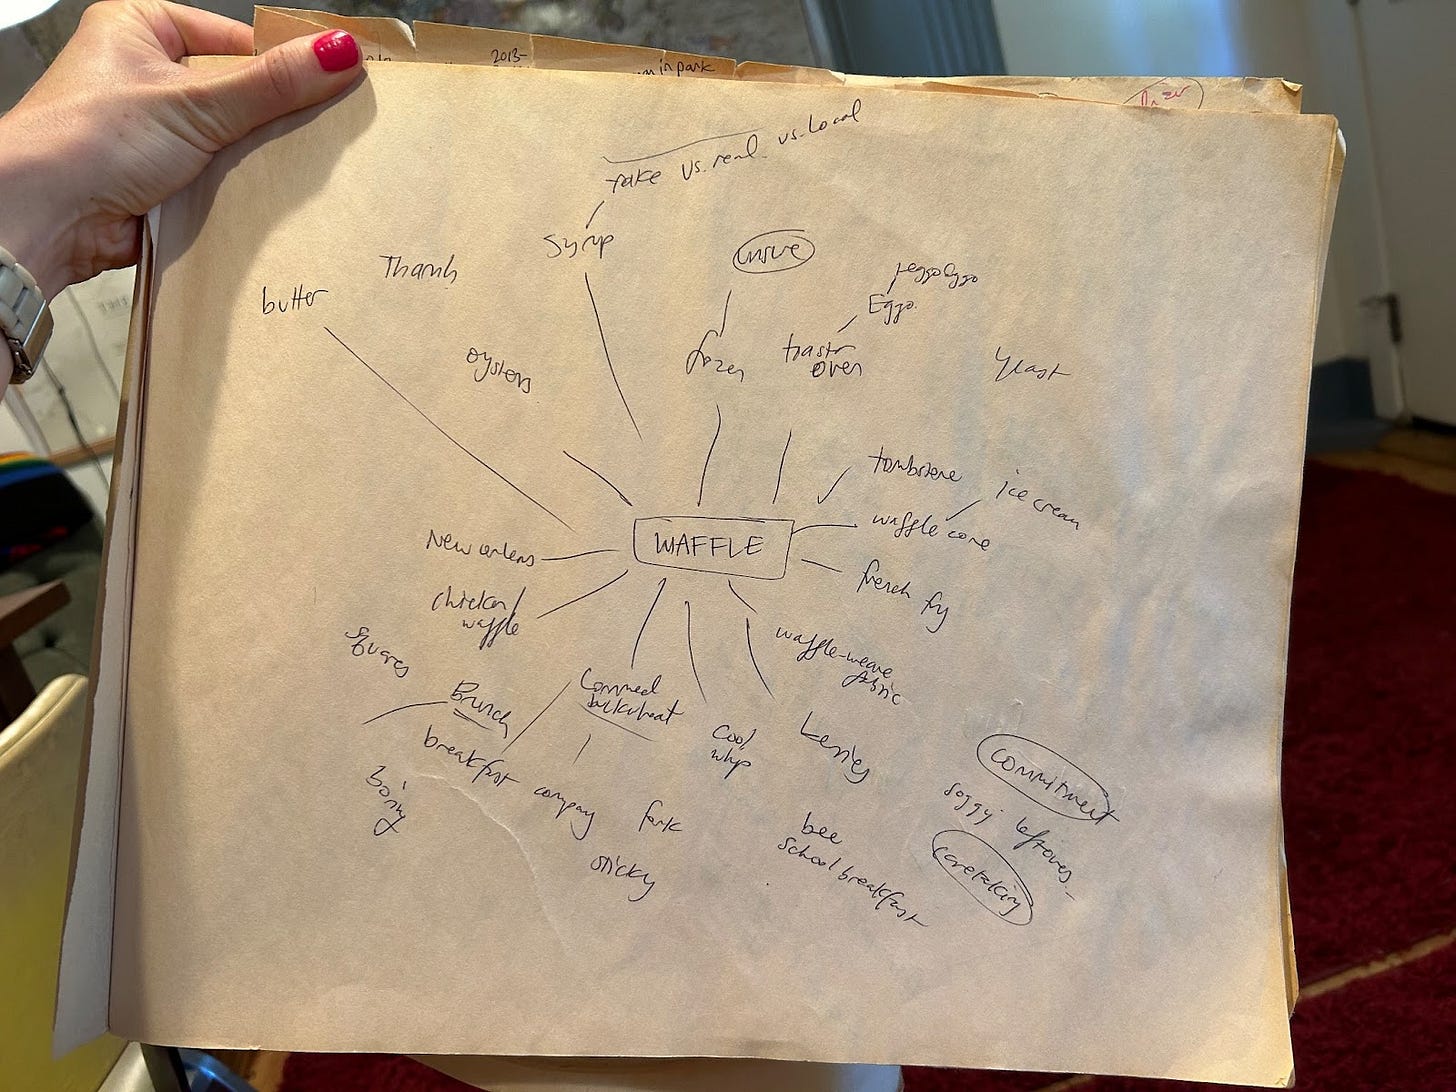 2013-
in park
fake vs. real vs. local
syrup
Thanh
butter
oysters
frozen
toaster
oven
Eggo.
leggo Eggo
yeast
tombstone
ice cream
waffle cone
french fry
WAFFLE
New orleans
chicken/
waffle
squares
Brunch
breakfast
boring
buckwheat
company
fork
sticky
cool
whip
waffle-weave
fabric
berries
bee
school breakfast
commitment
soggy leftovers
caretaking